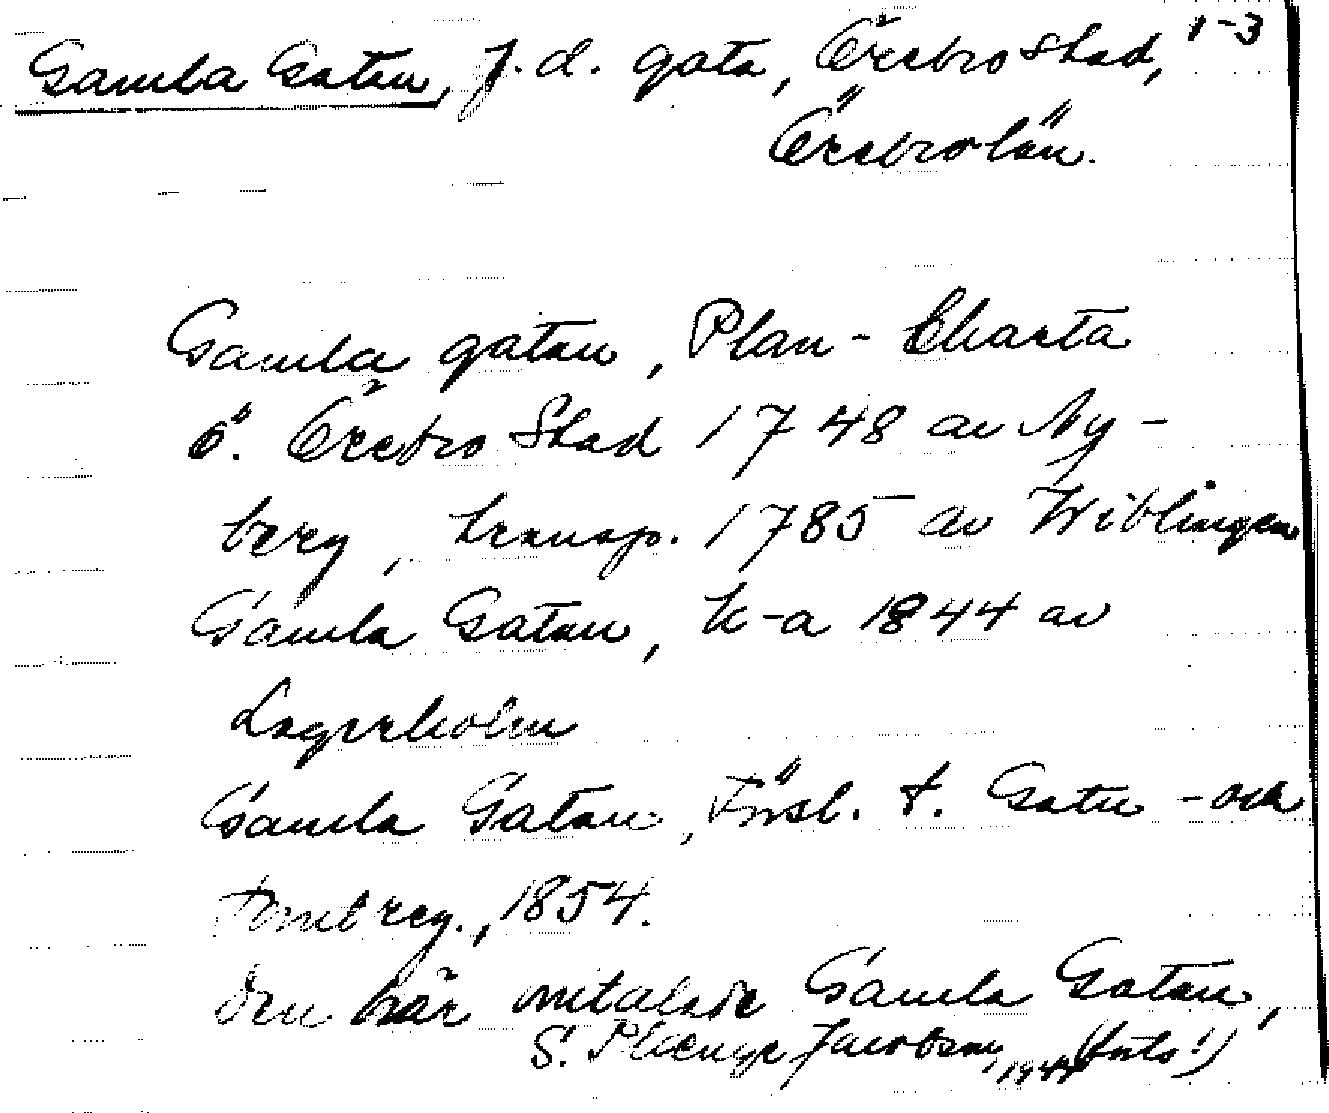 Gamla Gatan, f.d. gata, Örebro stad, 1-3
Örebro län.
Gamla gatan, Plan-Charta
ö. Örebro Stad 1748 av Ny-
berg, transp. 1785 av Wiblingen
Gamla Gatan, k-a 1844 av
Lagerholm
Gamla Gatan, Försl. t. Gatu- och
Tomtreg., 1854.
den här omtalade Gamla Gatan,
S. Jacobson, 1944 (foto!)